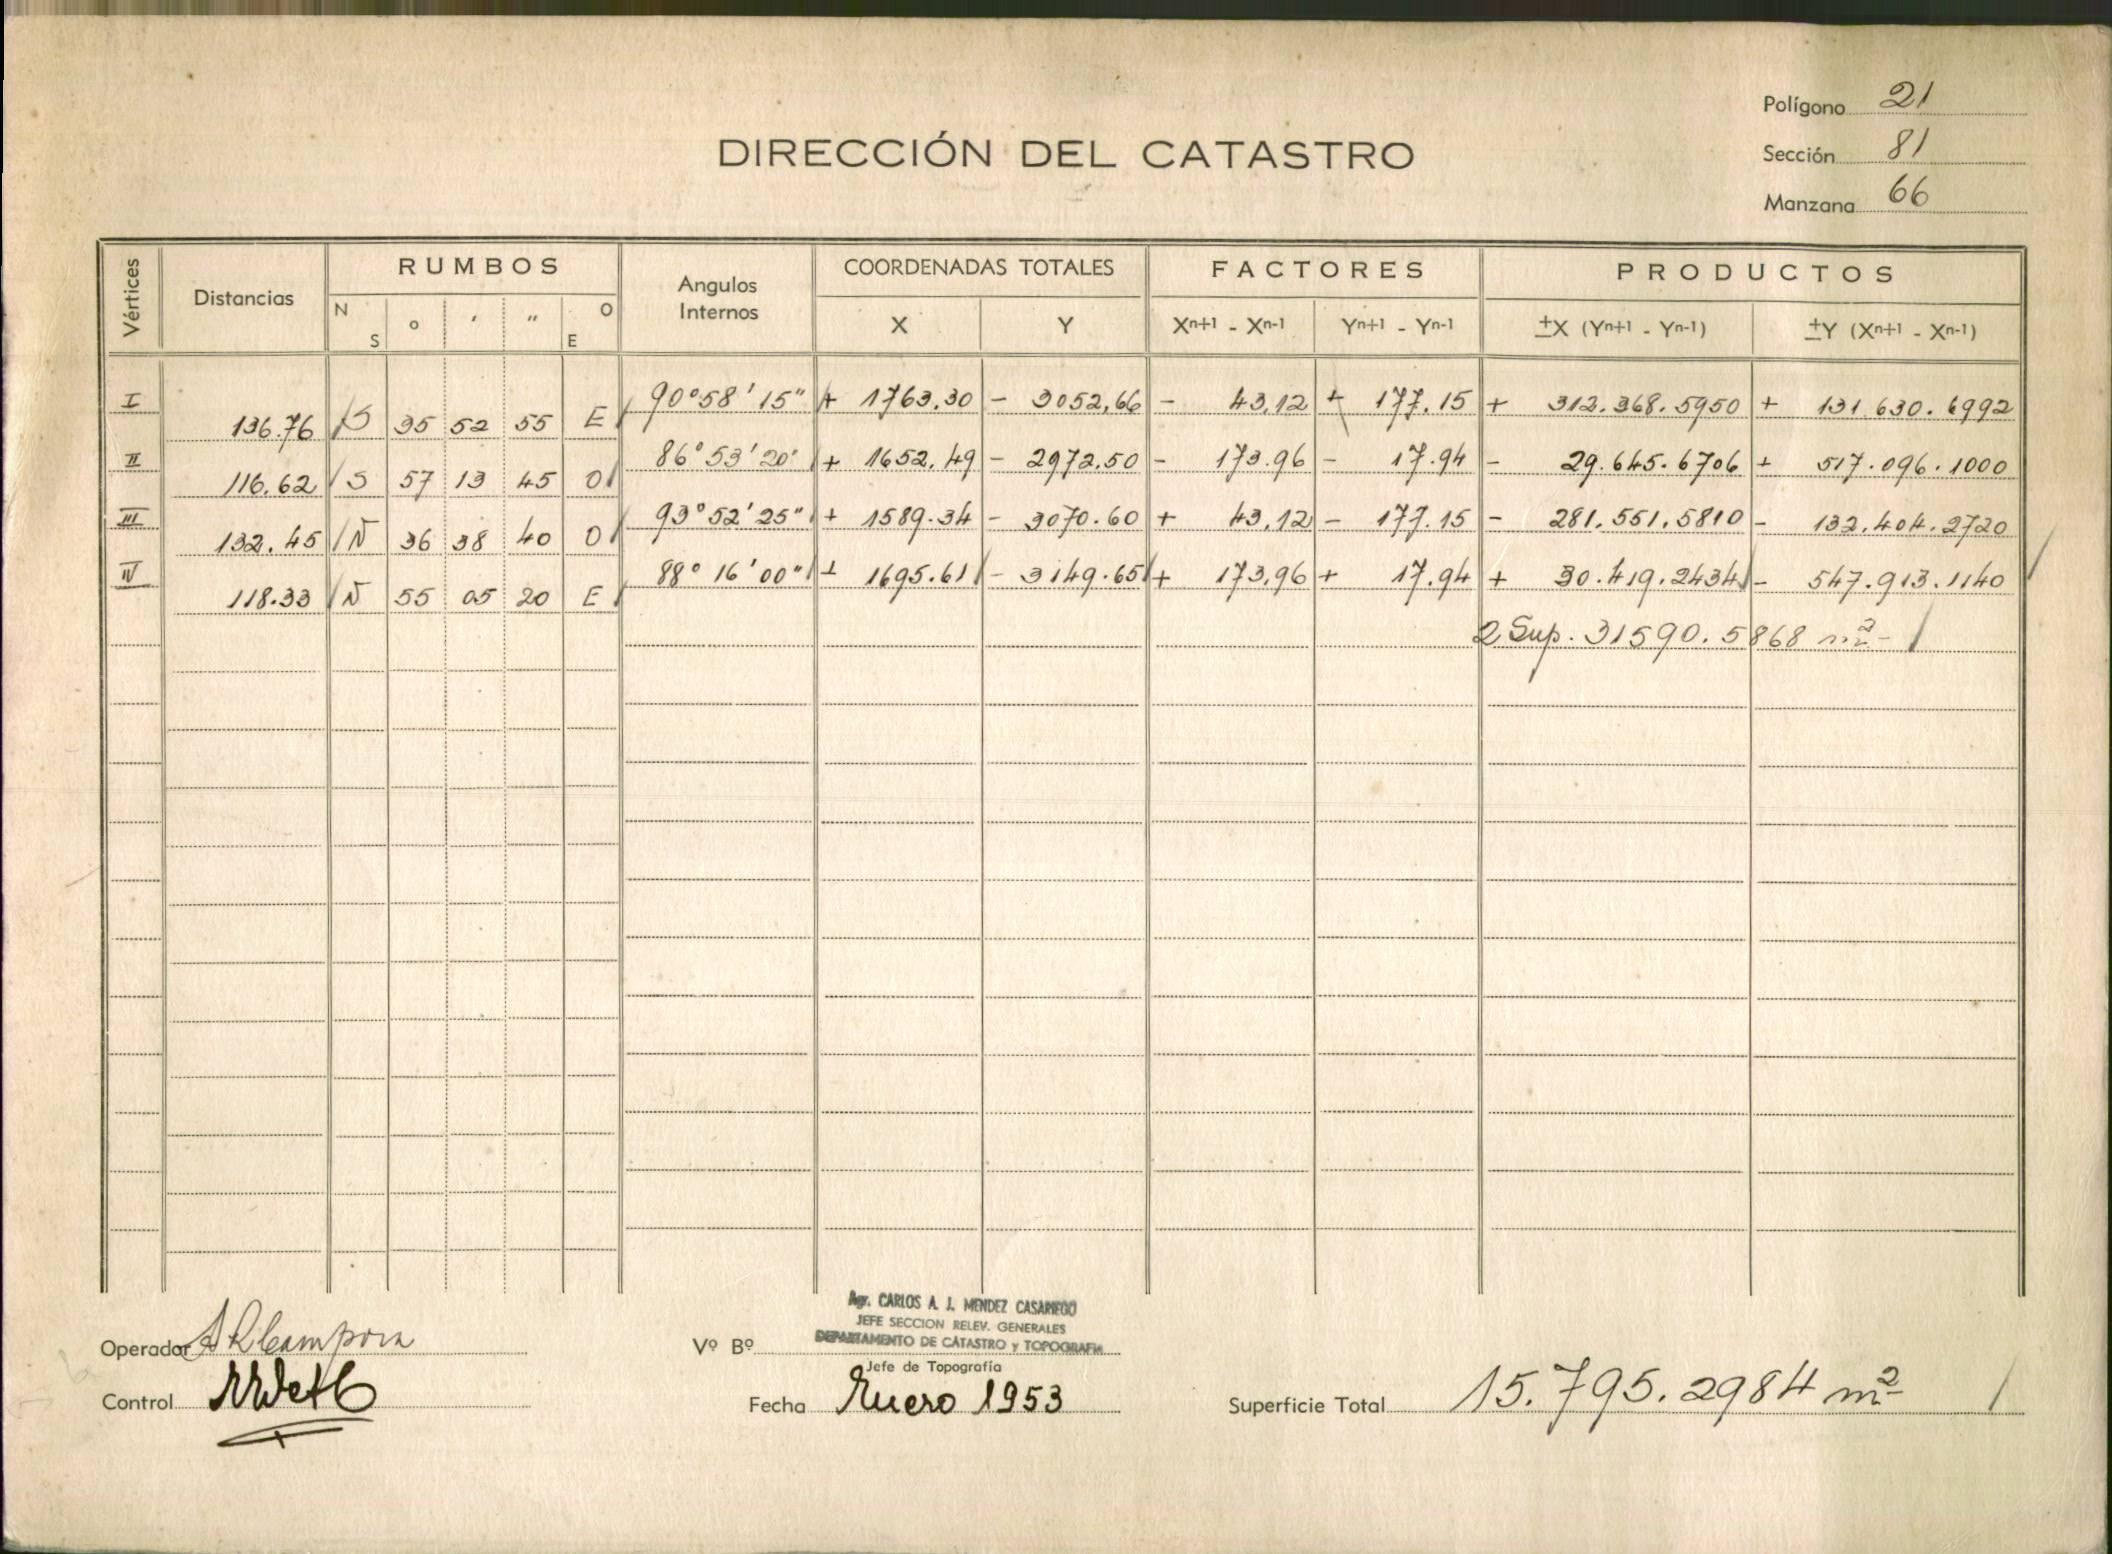 Polígono 21
DIRECCIÓN DEL CATASTRO
Sección 81
Manzana 66
Vértices Distancias RUMBOS Angulos Internos COORDENADAS TOTALES FACTORES PRODUCTOS
N S ° ' " O E X Y Xn+1 - Xn-1 Yn+1 - Yn-1 ±X (Yn+1 - Yn-1) ±Y (Xn+1 - Xn-1)
I 90°58'15" + 1763.30 - 3052,66 - 43,12 + 177.15 + 312.368.5950 + 131.630.6992
136.76 S 35 52 55 E
II 86°53'20" + 1652.49 - 2972.50 - 173.96 - 17.94 - 29.645.6706 + 517.096.1000
116.62 S 57 13 45 O
III 93°52'25" + 1589.34 - 3070.60 + 43,12 - 177.15 - 281.551.5810 - 132.404.2720
132.45 N 36 38 40 O
IV 88°16'00" + 1695.61 - 3149.65 + 173,96 + 17.94 + 30.419.2434 - 547.913.1140
118.33 N 55 05 20 E
2 Sup. 31590.5868 m²-
Agr. CARLOS A. J. MENDEZ CASARIEGO
JEFE SECCION RELEV. GENERALES
DEPARTAMENTO DE CATASTRO y TOPOGRAFIA
Operador Vº Bº
Jefe de Topografía
Control Fecha Enero 1953 Superficie Total 15.795.2984 m²